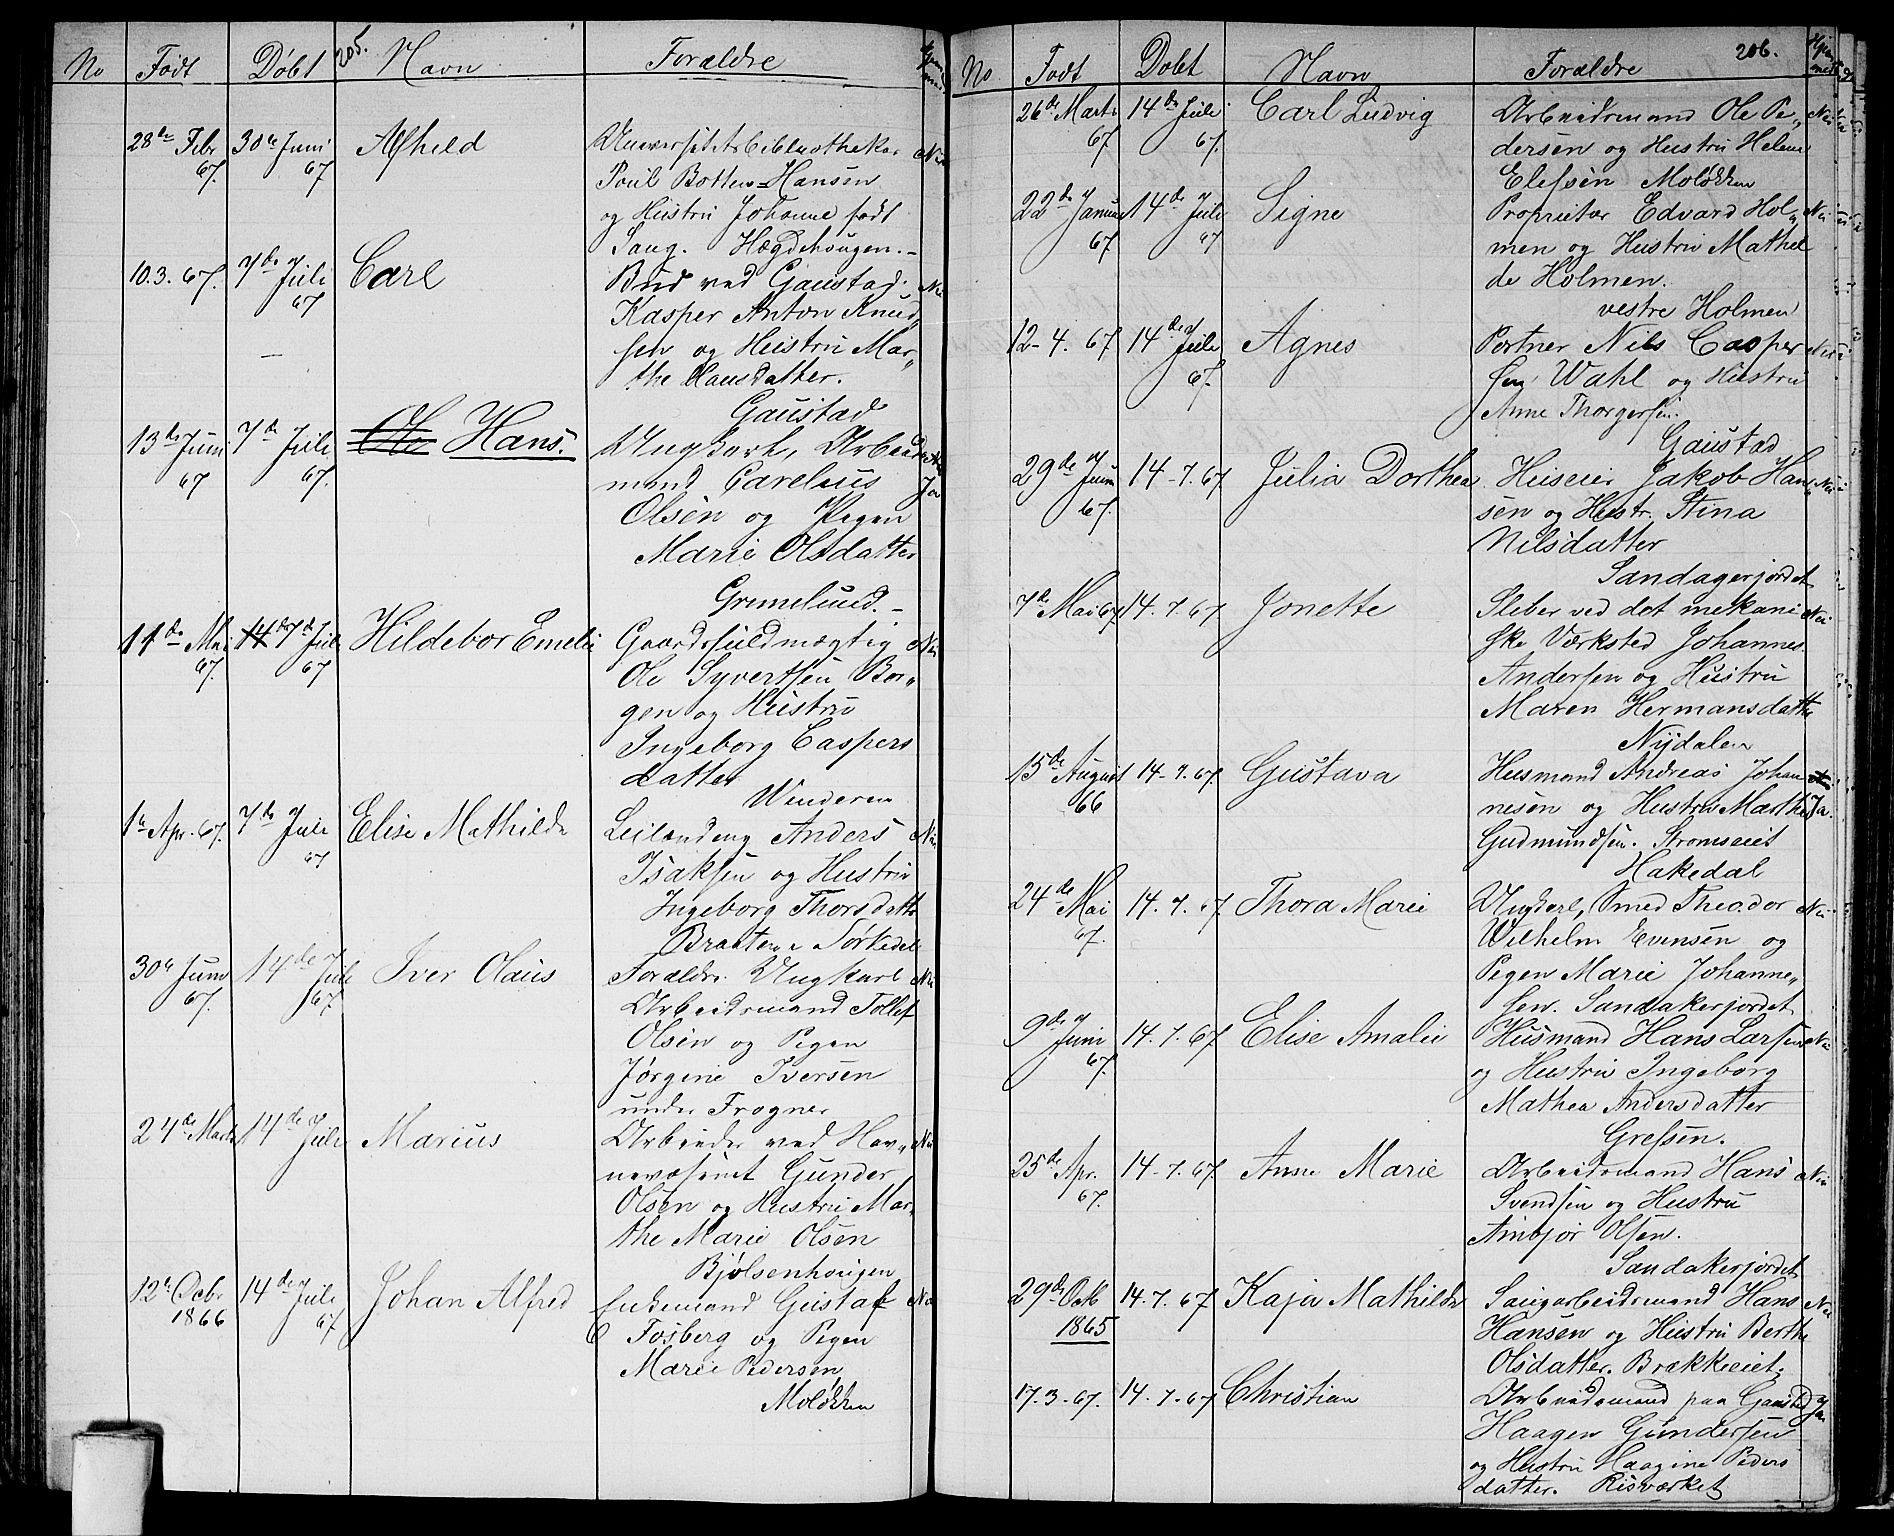 No Født Døbt 205. Navn Forældre
28de Febr 67. 30te Juni 67 Alfhild Universitetsbibliothekar Nei
Poul Botten-Hansen
og Hustru Johanne født
Saug. Hægdehougen.-
10.3.67. 7de Juli 67 Carl Bud ved Gaustad
Kasper Anton Knud„
sen og Hustru Mar„
the Hansdatter.
Gaustad
13de Juni 67 7de Juli 67. Ole Hans. Ungkarl, Arbeids
mand Carelius Ja
Olsen og Pigen
Marie Olsdatter
Grimelund.-
11de Mai 67. 14de 7de Juli 67 Hildebor Emelie Gaardsfuldmægtig Nei
Ole Syvertsen Bor„
gen og Hustru
Ingeborg Caspers
datter
Winderen
1te Apr. 67. 7de Juli 67 Elise Mathilde Leilænding Anders Nei
Isaksen og Hustru
Ingeborg Thorsdatter
Braaten i Sørkedal
30te Juni 67. 14de Juli 67. Iver Olaus Forældre Ungkarl Nei
Arbeidsmand Tollef
Olsen og Pigen
Jørgine Iversen
under Frogner
24de Marts 14de Juli Marius Arbeider ved Hav„ Nei
nevæsenet Gunder
Olsen og Hustru Mar„
the Marie Olsen
Bjølsenhougen
12te Octbr 1866 14de Juli 67. Johan Alfred Enkemand Gustaf Nei
Fosberg og Pigen
Marie Pedersen
Moløkken
No Født Døbt Navn Forældre 206.
26de Marts 67. 14de Juli 67. Carl Ludvig Arbeidsmand Ole Pe„ Nei
dersen og Hustru Helene
Elefsen Moløkken
22de Januar 67. 14de Juli 67 Signe Proprietær Edvard Hol„ Nei
men og Hustru Mathil
de Holmen.
vestre Holmen
12-4. 67 14de Juli 67. Agnes Portner Nils Casper Nei
sen Wahl og Hustru
Anne Thorgersen.
Gaustad
29de Juni 67. 14-7.67. Julia Dorthea Huseier Jakob Han„ Nei
sen og Hustr. Stina
Nilsdatter
Sandagerjordet
7de Mai 67 14.7.67 Jonette Sleber ved det mekani Nei
ske Værksted Johannes
Andersen og Hustru
Maren Hermansdatter
Nydalen
15de August 66 14-7.67. Gustava Husmand Andreas Johan
nesen og Hustru Marthe Ja.
Gudmundsen. Strømseiet
Hakedal
24de Mai 67. 14.7.67 Thora Marie Ungkarl, Smed Theodor Nei
Wilhelm Evensen og
Pigen Marie Johanne„
sen. Sandakerjordet
9de Juni 67. 14.7.67 Elise Amalie Husmand Hans Larsen Nei
og Hustru Ingeborg
Mathea Andersdatter
Grefsen.
25de Apr. 67. 14-7.67. Anne Marie Arbeidsmand Hans Nei
Svendsen og Hustru
Ambjør Olsen.
Sandakerjordet
29de Octb 1865 14.7.67 Kaja Mathilde Saugarbeidsmand Hans Nei
Hansen og Hustru Berthe
Olsdatter. Brækkeeiet.
17.3.67. 14.7.67 Christian Arbeidsmand paa Gaustad Ja
Haagen Gundersen
og Hustru Haagine Peders
datter. Risværket